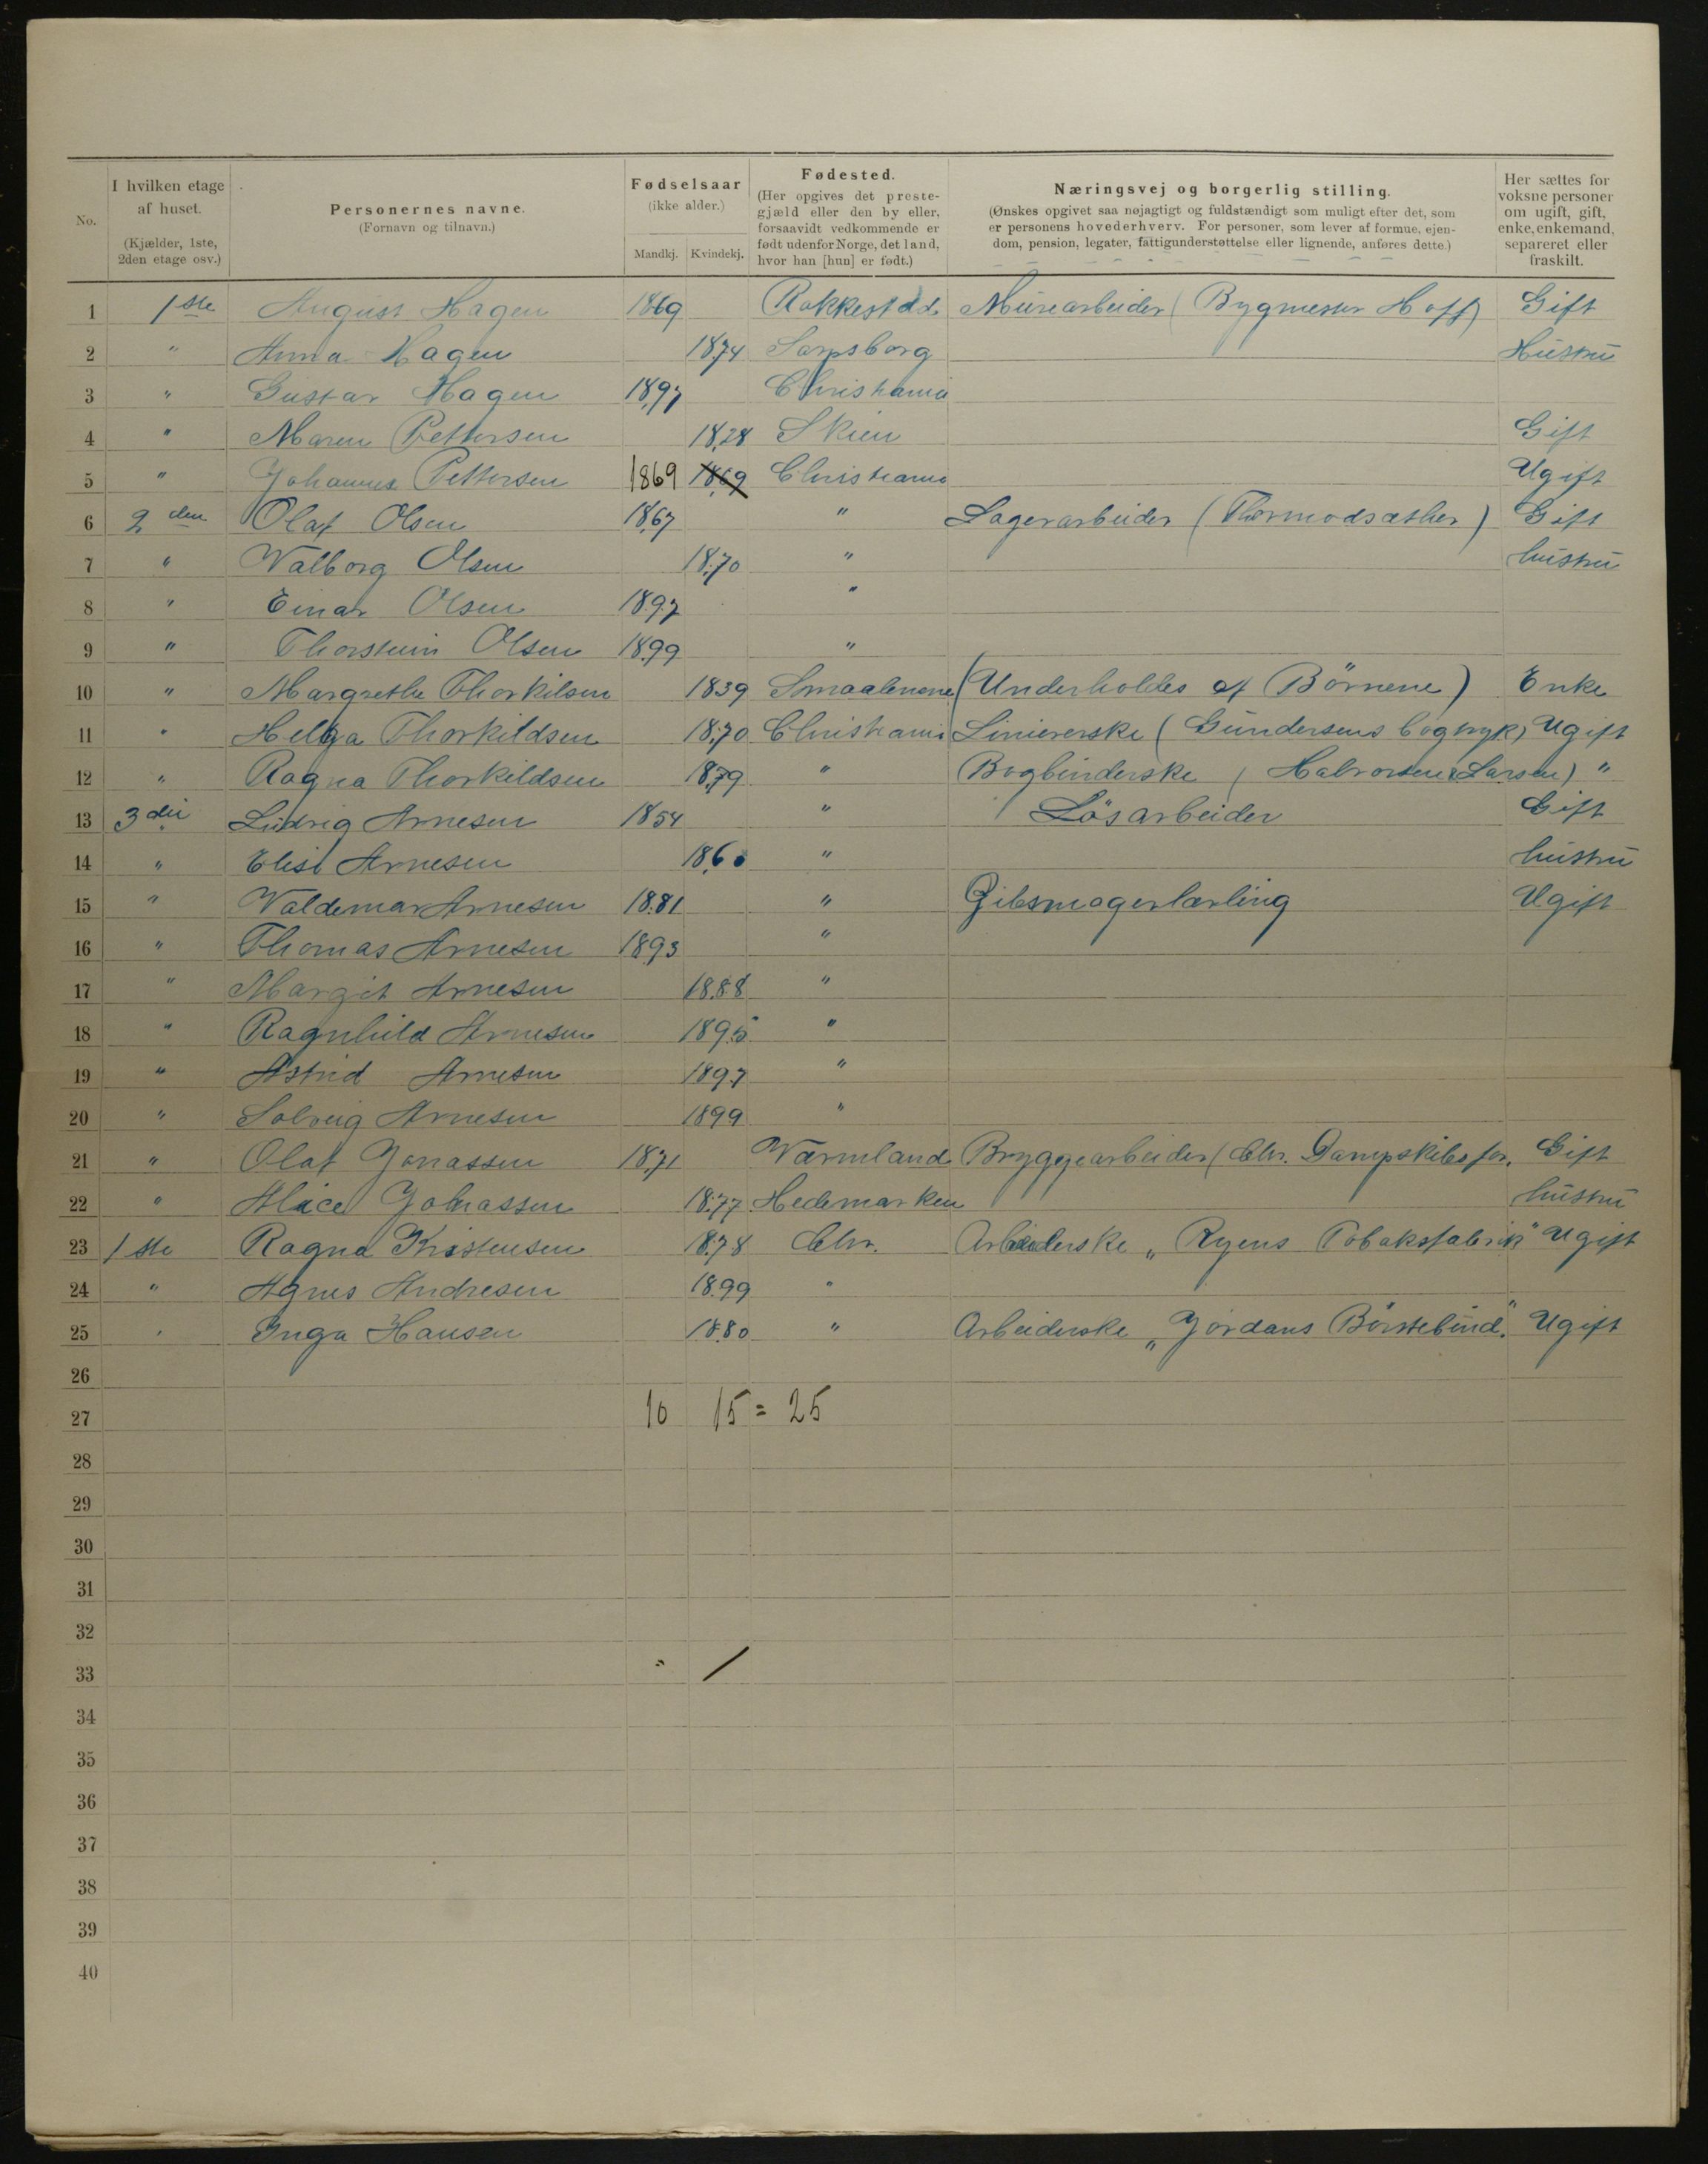 No.
I hvilken etage af huset. (Kjælder, 1ste, 2den etage osv.)
Personernes navne. (Fornavn og tilnavn.)
Fødselsaar (ikke alder.) Mandkj. Kvindekj.
Fødested. (Her opgives det prestegjæld eller den by eller, forsaavidt vedkommende er født udenfor Norge, det land, hvor han [hun] er født.)
Næringsvej og borgerlig stilling. (Ønskes opgivet saa nøjagtigt og fuldstændigt som muligt efter det, som er personens hovederhverv. For personer, som lever af formue, ejendom, pension, legater, fattigunderstøttelse eller lignende, anføres dette.)
Her sættes for voksne personer om ugift, gift, enke, enkemand, separeret eller fraskilt.
1 1ste August Hagen 1869 Rakkestad. Murearbeider (Bygmester Hoff) Gift
2 " Anna Hagen 1874 Sarpsborg Hustru
3 " Gustav Hagen 1897 Christiania
4 " Maren Pettersen 1828 Skien Gift
5 " Johannes Pettersen 1869 1869 Christiania Ugift
6 2den Olaf Olsen 1867 " Lagerarbeider (Thormodsæther) Gift
7 " Walborg Olsen 1870 " hustru
8 " Einar Olsen 1897 "
9 " Thorstein Olsen 1899 "
10 " Margrethe Thorkilsen 1839 Smaalenene (Underholdes af Börnene) Enke
11 " Helga Thorkildsen 1870 Christiania Liniererske (Gundersens bogtryk) Ugift
12 " Ragna Thorkildsen 1879 " Bogbinderske (Halvorsen & Larsen) "
13 3die Ludvig Arnesen 1854 " Lösarbeider Gift
14 " Elise Arnesen 1860 " hustru
15 " Valdemar Arnesen 1881 " Gibsmagerlærling Ugift
16 " Thomas Arnesen 1893 "
17 " Margit Arnesen 1888 "
18 " Ragnhild Arnesen 1895 "
19 " Astrid Arnesen 1897 "
20 " Solveig Arnesen 1899 "
21 " Olaf Jonassen 1871 Værmland Bryggearbeider (Chr. Dampskibsfor. Gift
22 " Alice Johassen 1877 Hedemarken hustru
23 1ste Ragna Kristensen 1878 Chr. Arbeiderske "Ryens Tobaksfabrik" Ugift
24 " Agnes Andresen 1899 "
25 " Inga Hansen 1880 " Arbeiderske "Jordans Börstebind." Ugift
26
27 10 15 = 25
28
29
30
31
32
33 " /
34
35
36
37
38
39
40